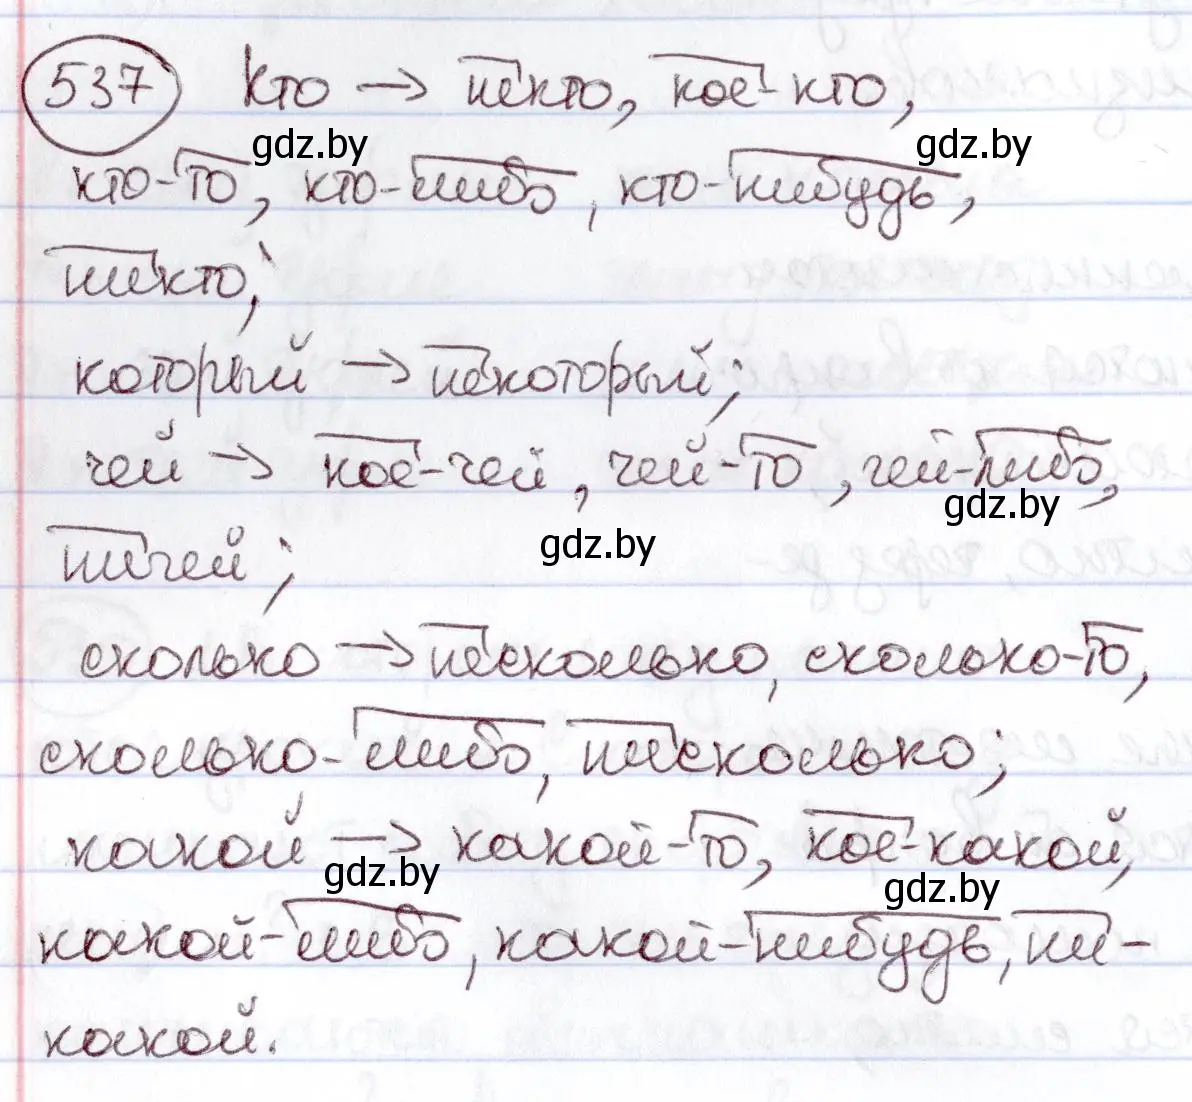 537 Кто → некто, кое-кто,
gdz.by gdz.by
кто-то, кто-либо, кто-нибудь,
никто;
который → некоторый;
чей → кое-чей, чей-то, чей-либо,
gdz.by gdz.by
ничей;
сколько → несколько, сколько-то,
сколько-либо, нисколько;
какой → какой-то, кое-какой,
gdz.by gdz.by
какой-либо, какой-нибудь, ни-
какой.